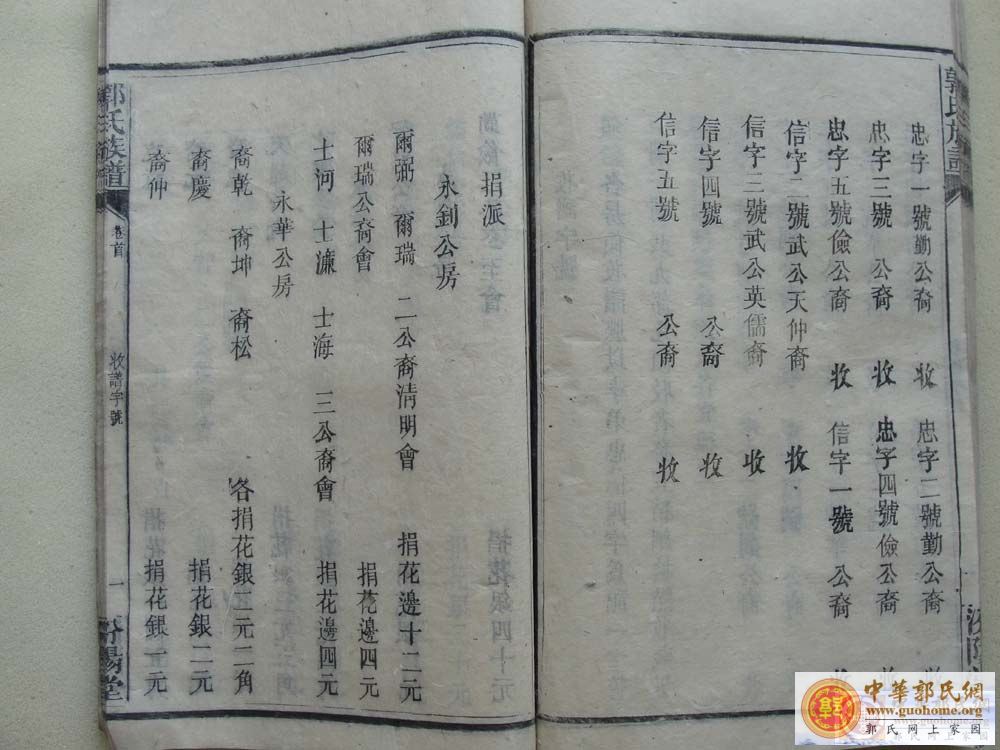 郭氏族譜
忠字一號勤公裔 收 忠字二號勤公裔
忠字三號 公裔 收 忠字四號儉公裔
忠字五號儉公裔 收 信字一號 公裔
信字二號武公天仲裔 收
信字三號武公英儒裔 收
信字四號 公裔 收
信字五號 公裔 收
捐派
永釗公房
爾弼 爾瑞 二公裔清明會 捐花邊十二元
爾瑞公裔會 捐花邊四元
士河 士濂 士海 三公裔會 捐花邊四元
永華公房
裔乾 裔坤 裔松 各捐花銀二元二角
裔慶 捐花銀二元
裔仲 捐花銀一元
郭氏族譜 卷首 收譜字號 一 汾陽堂
中華郭氏網
www.guohome.org
郭氏网上家园